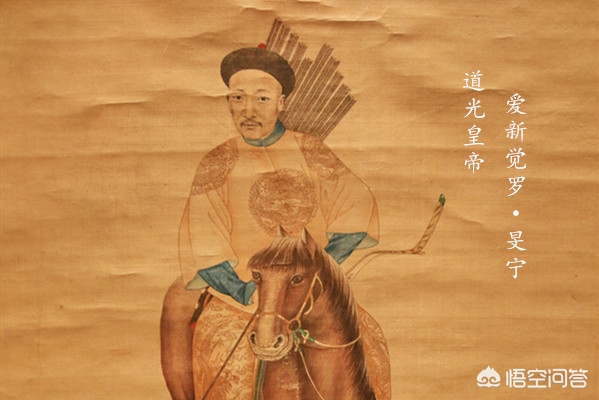 道光皇帝
爱新觉罗·旻宁
悟空问答